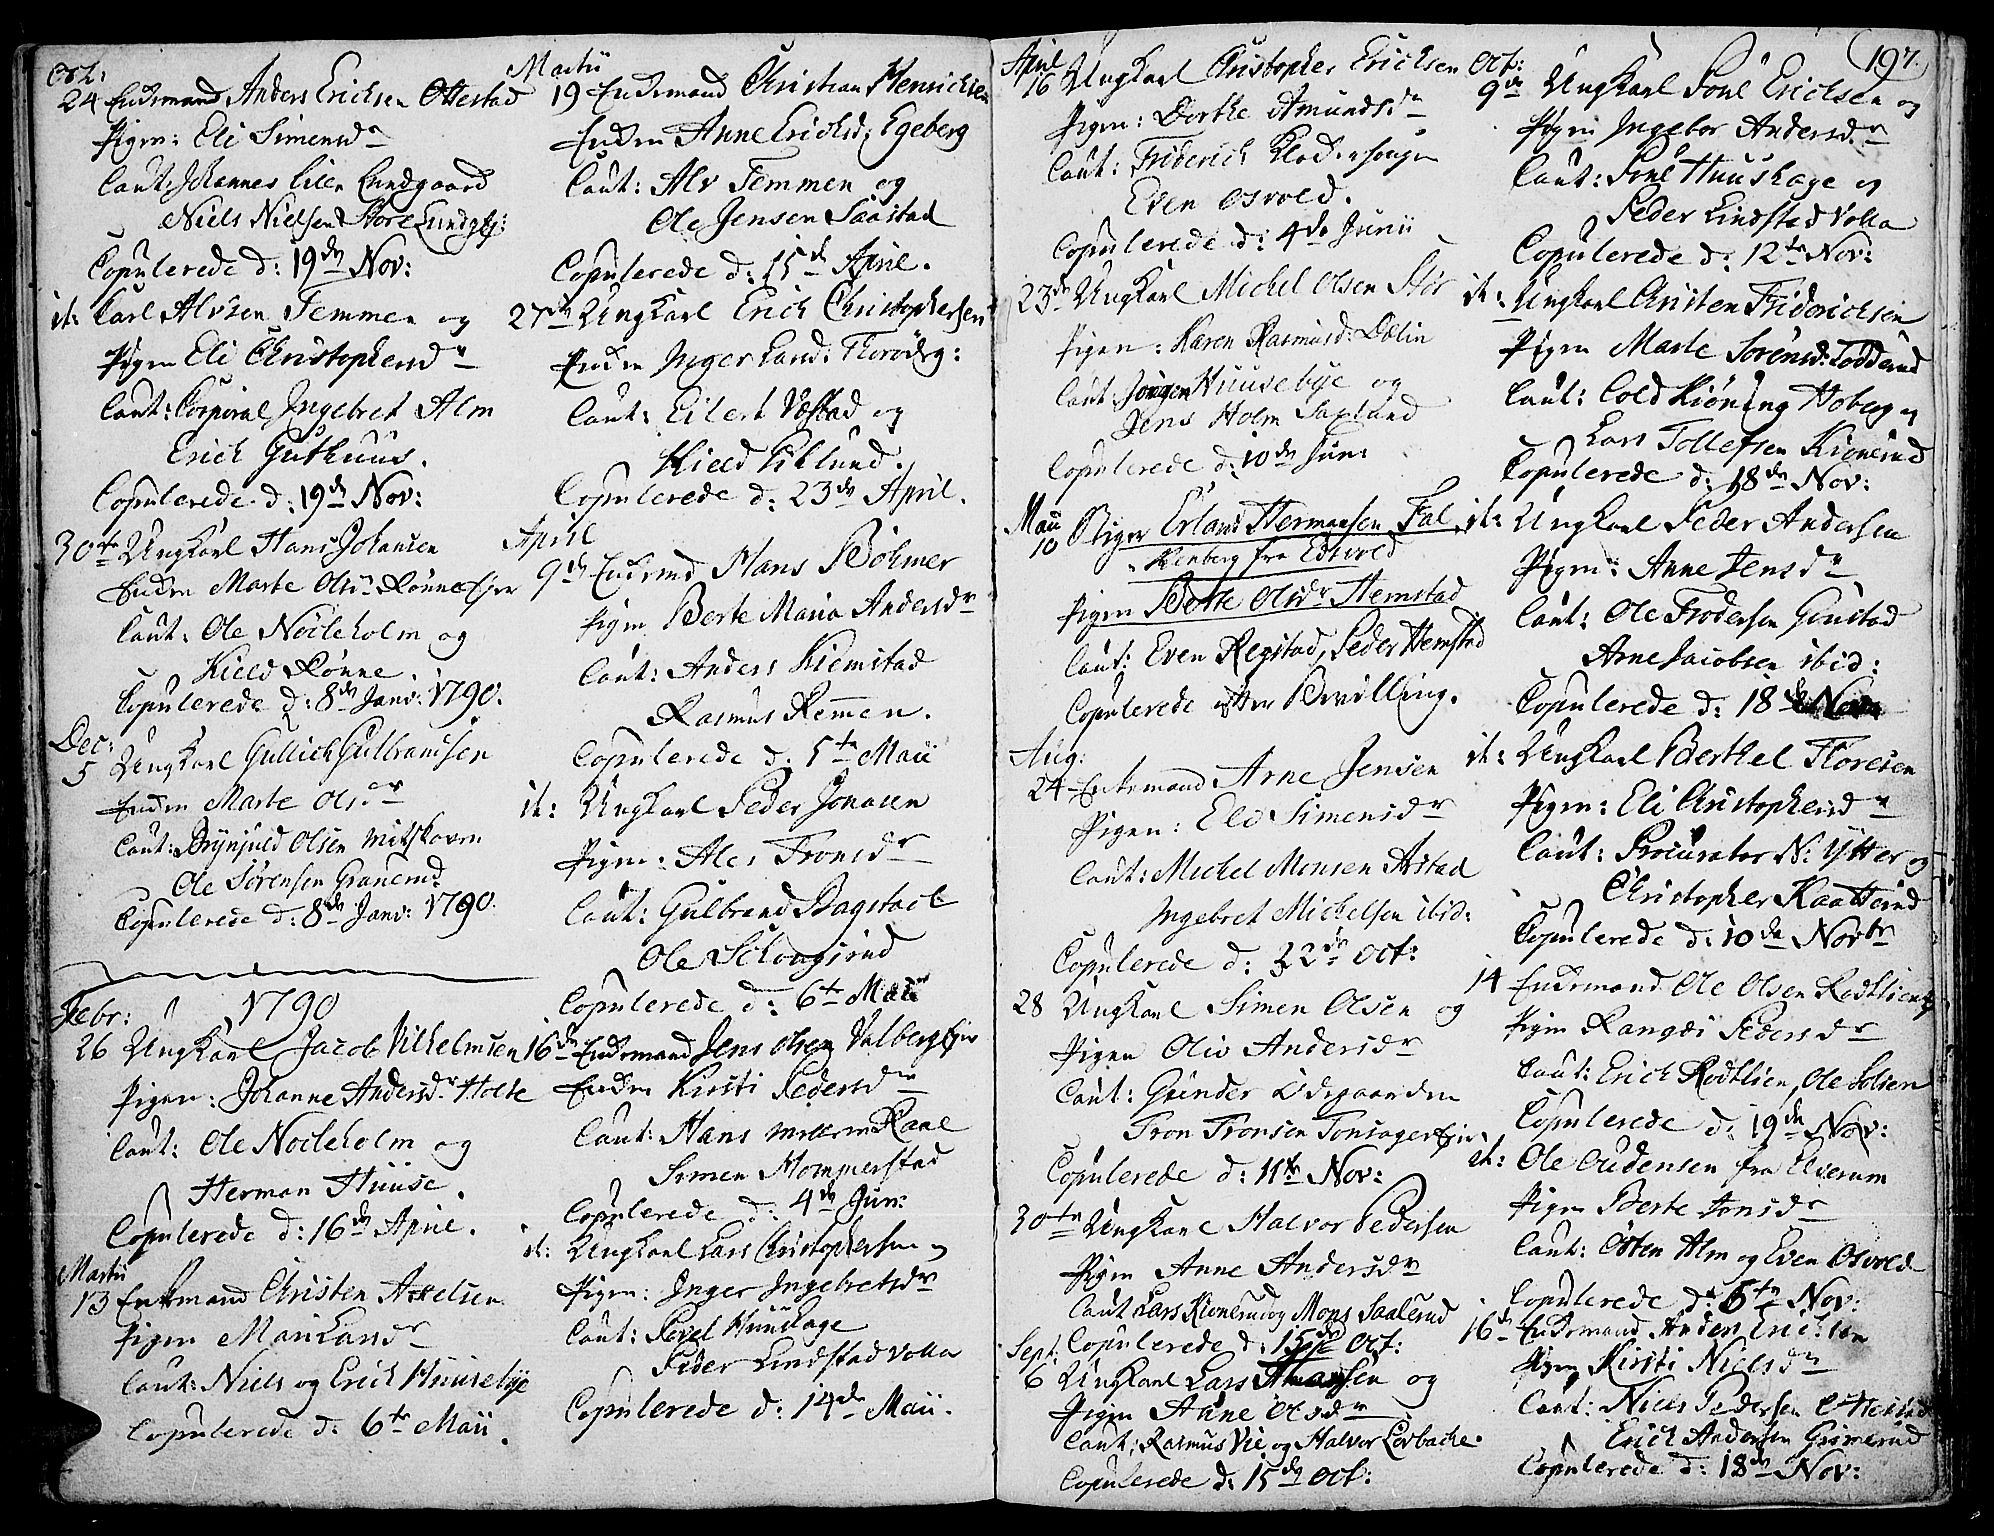 Oct:
24 Enkemand Anders Erichsen Ottestad
Pigen: Eli Simensdr
Caut: Johannes Lilen Lundgaard
Niels Nielsen Store Lundgej:
Copulerede d: 19de Nov:
it: Karl Alvsen Femmen og
Pigen Eli Christophersdr
Caut: Corporal Ingebret Alm
Erich Guthuus.
Copulerede d: 19de Nov:
30te Ungkarl Hans Johansen
Enken Marte Olsdr Rønne Ejer
Caut: Ole Nocleholm og
Kield Rønne
Copulerede d: 8de Janv: 1790.
Dec:
5 Ungkarl Gullich Gulbrandsen
Enken Marte Olsdr
Caut: Brynjuld Olsen Mitskoven
Ole Sørensen Granerud
Copulerede d: 8de Janv: 1790.
1790
Febr:
26 Ungkarl Jacob Vilhelmsen
Pigen: Johanne Andersdr Holte
Caut: Ole Nocleholm og
Herman Huuse.
Copulerede d: 16de April.
Martii
13 Enkemand Christen Axelsen
Pigen Mari Larsdr
Caut: Niels og Erich Huusebye
Copulerede d: 6te Maii.
Martii
19 Enkemand Christian Henrichsen
Enken Anne Erichsd: Egeberg
Caut: Alv Femmen og
Ole Jensen Saastad
Copulerede d: 15de April.
27de Ungkarl Erich Christophersen
Enken Inger Larsd: Thorødeg:
Caut: Eilert Vestad og
Kield Eiklund.
Copulerede d: 23de April.
April
9de Enkemd Hans Bøhmer
Pigen Berte Maria Andersdr
Caut: Anders Kiemstad
Rasmus Remmen.
Copulerede d: 5te Maii
it: Ungkarl Peder Jonasen
Pigen: Ales Tronsdr
Caut: Gulbrand Bagstad
Ole Schougsrud
Copulerede d: 6te Maii
16de Enkemand Jens Olsen Valberg Ejer
Enken Kirsti Pedersdr
Caut: Hans Raae
Simen Hommerstad
Copulerede d: 4de Jun:
it: Ungkarl Lars Christophersen og
Pigen: Inger Ingebretsdr
Caut: Povel Huushage
Peder Lindstad Volla
Copulerede d: 14de Maii.
April
16 Ungkarl Christopher Erichsen
Pigen: Dorthe Amundsdr
Caut: Friderich
Even Osvold.
Copulerede d: 4de Junii
23de Ungkarl Michel Olsen Stor
Pigen: Karen Rasmusd: Dælin
Caut: Jørgen Huusebye og
Jens Holm Saxlund
Copulerede d: 10de Jun:
Maii
10 Sliger Erland Hermansen Fal
kenberg fra Edsvold
Pigen Berte Olsdr Hemstad
Caut: Even Regstad, Peder Hemstad
Copulerede efter Bevilling.
Aug:
24 Enkemand Arne Jensen
Pigen: Eli Simensdr
Caut: Michel Monsen Arstad
Ingebret Michelsen ibid:
Copulerede d: 22de Oct:
28 Ungkarl Simen Olsen og
Pigen Oliv Andersdr
Caut: Gunder Odegaarden
Tron Tronsen Tonsager Ejer
Copulerede d: 11te Nov:
30te Ungkarl Halvor Pedersen
Pigen Anne Andersdr
Caut: Lars Kionerud og Mons Saalerud
Copulerede d: 15de Oct:
Sept:
6 Ungkarl Lars Hansen og
Pigen Anne Olsdr
Caut: Rasmus Vie og Halvor Lovbache.
Copulerede d: 15de Oct:
197.
Oct:
9de Ungkarl Poul Erichsen og
Pigen Ingebor Andersdr
Caut: Poul Huushage og
Peder Lindstad Volla
Copulerede d: 12te Nov:
it: Ungkarl Christen Friderichsen
Pigen Marte Sørensd: Todderud
Caut: Cold Kiøning Hoberg og
Lars Tollefsen Kionerud
Copulerede d: 18de Nov:
it: Ungkarl Peder Andersen
Pigen: Anne Jensdr
Caut: Ole Frodersen Gaustad
Arne Jacobsen ibid:
Copulerede d: 18de Nov
it: Ungkarl Berthel Floresen
Pigen: Eli Christophersdr
Caut: Procurator N: Ytter og
Christopher Kaatterud
Copulerede d: 10de Novbr
14 Enkemand Ole Olsen Rødtlien
Pigen Rangdi Pedersdr
Caut: Erich Rødtlien, Ole Solien
Copulerede d: 19de Nov:
it: Ole Oudensen fra Elverum
Pigen Berte Jonsdr
Caut: Osten Alm og Even Osvold
Copulerede d: 5te Nov:
16de Enkemand Anders Erichsen
Pigen Kirsti Nielsdr
Caut: Niels Pedersen
Erich Andersen Grimerud
Copulerede d: 18de Nov: